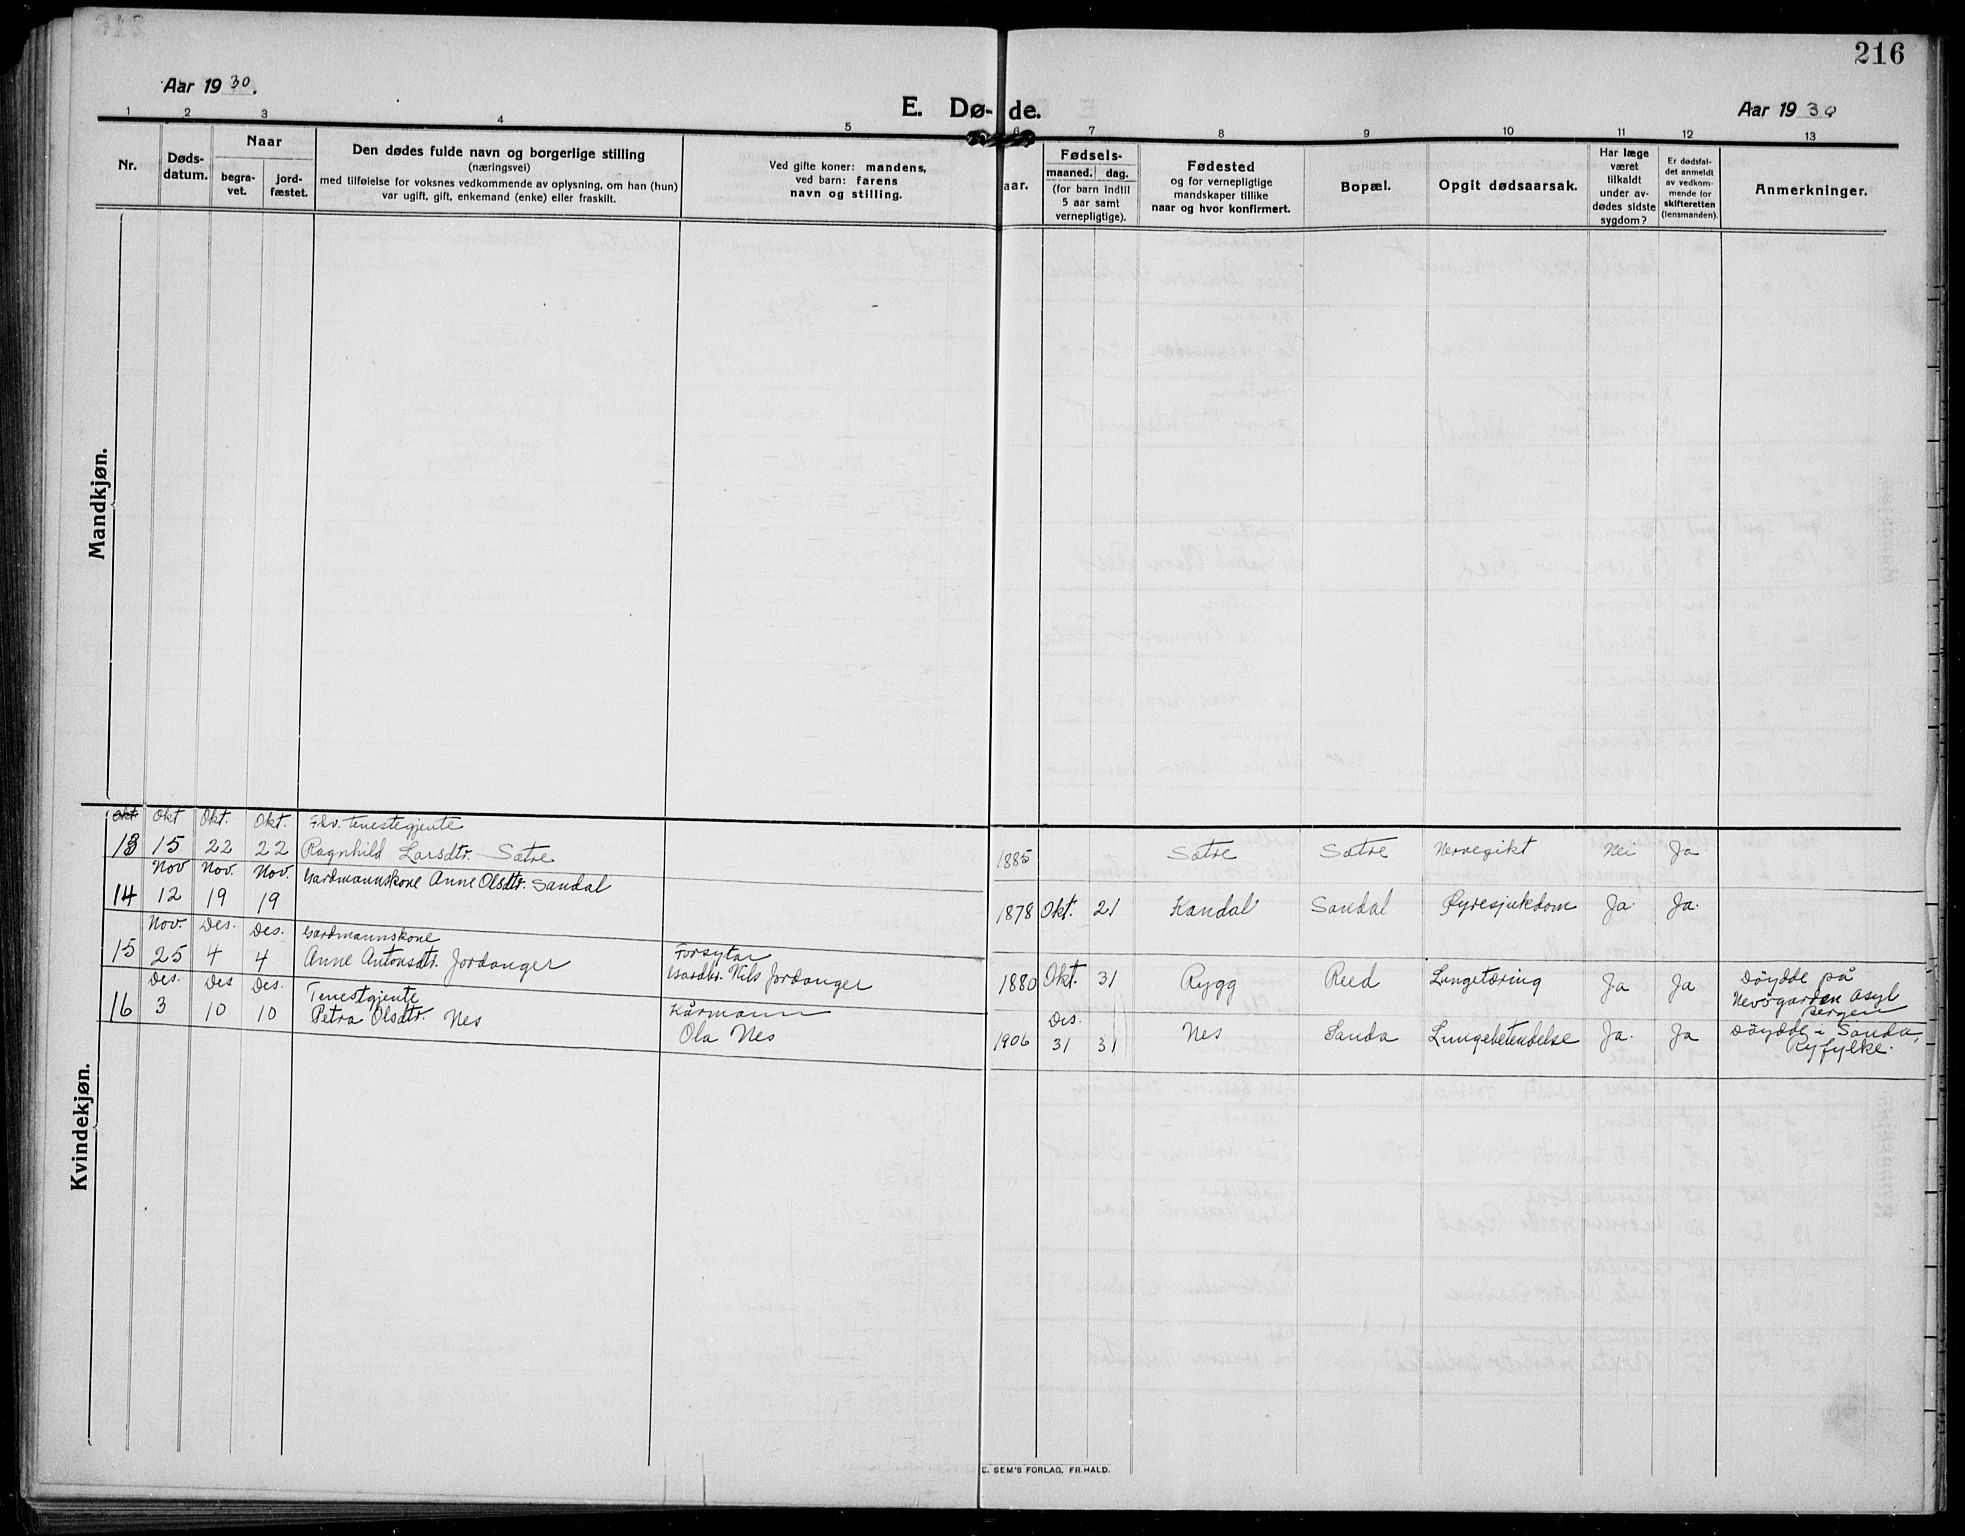 216
Aar 1930.
E. Dø- de.
Aar 1930
1 2 3 4 5 6 7 8 9 10 11 12 13
Nr.
Døds-
datum.
Naar
begra-
vet.
jord-
fæstet.
Den dødes fulde navn og borgerlige stilling
(næringsvei)
med tilføielse for voksnes vedkommende av oplysning, om han (hun)
var ugift, gift, enkemand (enke) eller fraskilt.
Ved gifte koner: mandens,
ved barn: farens
navn og stilling.
aar.
Fødsels-
maaned. dag.
(for barn indtil
5 aar samt
vernepligtige).
Fødested
og for vernepligtige
mandskaper tillike
naar og hvor konfirmert.
Bopæl.
Opgit dødsaarsak.
Har læge
været
tilkaldt
under av-
dødes sidste
sygdom?
Er dødsfal-
det anmeldt
av vedkom-
mende for
skifteretten
(lensmanden).
Anmerkninger.
Mandkjøn.
Kvindekjøn.
Okt Okt Okt. Okt. Fhv. tenestegjente
13 15 22 22 Ragnhild Larsdtr. Sætre 1885 Sætre Sætre Nervegikt Nei Ja
Nov Nov. Nov. Gardmannskone Anne Olsdtr. Sandal
14 12 19 19 1878 Okt. 21 Kandal Sandal Øyresjukdom Ja. Ja.
Nov. Des. Des. Gardmannskone
15 25 4 4 Anne Antonsdtr. Jordanger Forsytar
Gardbr. Nils Jordanger 1880 Okt. 31 Rygg Reed Lungetæring Ja Ja Døydde på
Nevøgarden Asyl
Bergen
Des. Des Des. Tenestgjente
16 3 10 10 Petra Olsdtr. Nes Kårmann
Ola Nes 1906 Des. 31 31 Nes Sanda Lungebetendelse Ja. Ja Døydde i Sanda,
Ryfylke.
E. SEM'S FORLAG, FR.HALD.